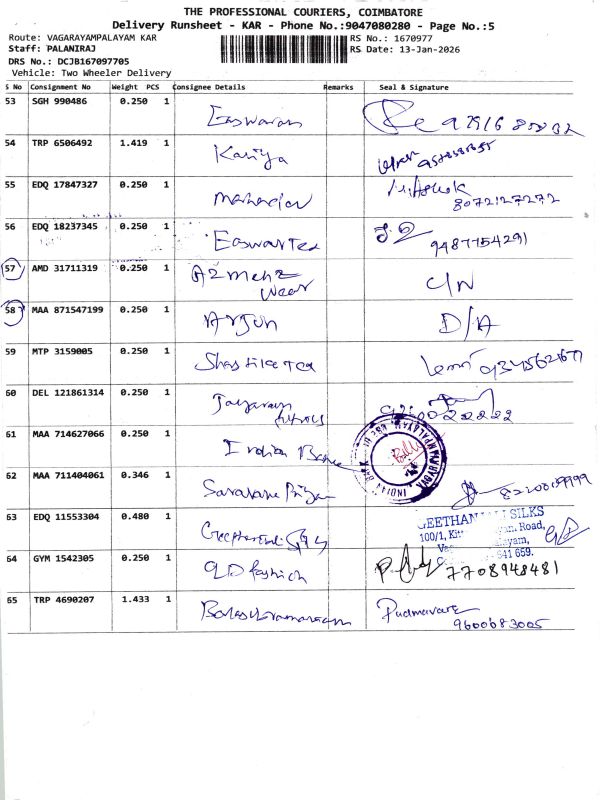 THE PROFESSIONAL COURIERS, COIMBATORE
Delivery Runsheet - KAR - Phone No.:9047080280 - Page No.:5
Route: VAGARAYAMPALAYAM KAR
RS No.: 1670977
Staff: PALANIRAJ
RS Date: 13-Jan-2026
DRS No.: DCJB167097705
Vehicle: Two Wheeler Delivery
S No Consignment No Weight PCS Consignee Details Remarks Seal & Signature
53 SGH 990486 0.250 1 Easwaran
54 TRP 6506492 1.419 1 Kaviya
55 EDQ 17847327 0.250 1 Manharan M.Ashok
8072127272
56 EDQ 18237345 0.250 1 Easwar Tex 9487754291
57 AMD 31711319 0.250 1 A2 Menz C/N
Wear
58 MAA 871547199 0.250 1 Arjun D/A
59 MTP 3159005 0.250 1 Shastika Tex
60 DEL 121861314 0.250 1 Jayaram
61 MAA 714627066 0.250 1 Indian Bank
INDIAN BANK
62 MAA 711404061 0.346 1 Saravana Priyan
63 EDQ 11553304 0.480 1 Geethanjali Silks
GEETHANJALI SILKS
100/1, Road,
641 659.
64 GYM 1542305 0.250 1 QD fashion 7708948481
65 TRP 4690207 1.433 1 Balasubramaniam Padmavathi
9600683005